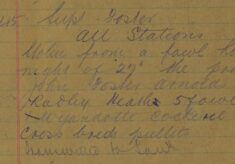 Supt. Foster
All Stations
Stolen from a fowl ho
night of 27th the pro
John Foster Arnolds
Radley Heath 5 fowl
Wyandotte cockerel
cross bred pullets